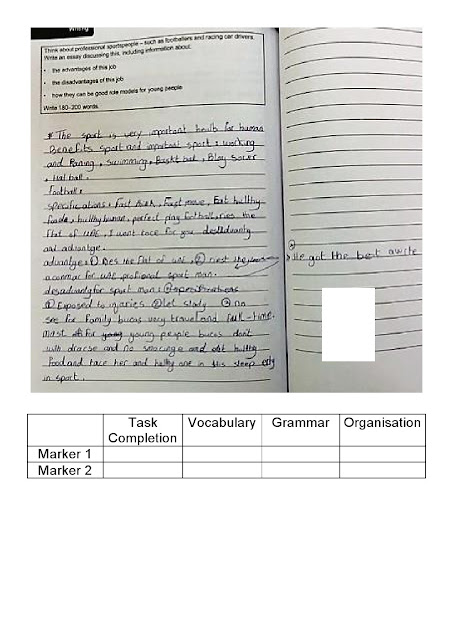 Writing
Think about professional sportspeople – such as footballers and racing car drivers.
Write an essay discussing this, including information about:
• the advantages of this job
• the disadvantages of this job
• how they can be good role models for young people
Write 180-200 words.
* The sport is very important health for human
Benefits sport and important sport : working
and Raning, swimming, Baskt ball, Blay
ball.
football :
specifications : Fast think, Fast move, Eat hullthy
foods, hullthy human, perfect play the
flat of UAE, I went race for you
and advantge.
advantge : ① the flat of UAE, ②
for UAE sport man.
for sport man :
① Exposed to injaries ② let stady ③ no
see for family bucas very travel and time.
mast for young people bucas dont
with and no and hullthy
food and her and one in this sleep
in sport.
He got the best
Task Completion Vocabulary Grammar Organisation
Marker 1
Marker 2